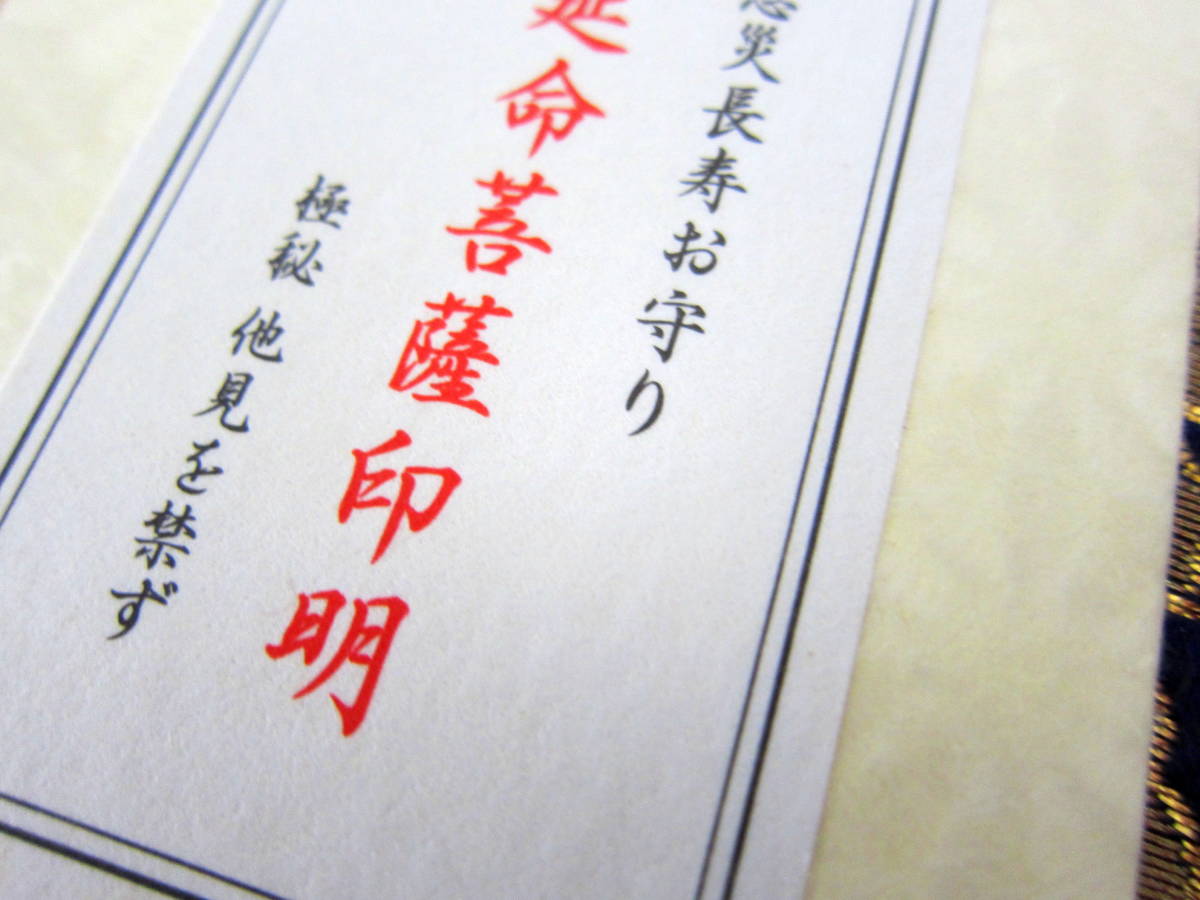 災長寿お守り
延命菩薩印明
極秘 他見を禁ず